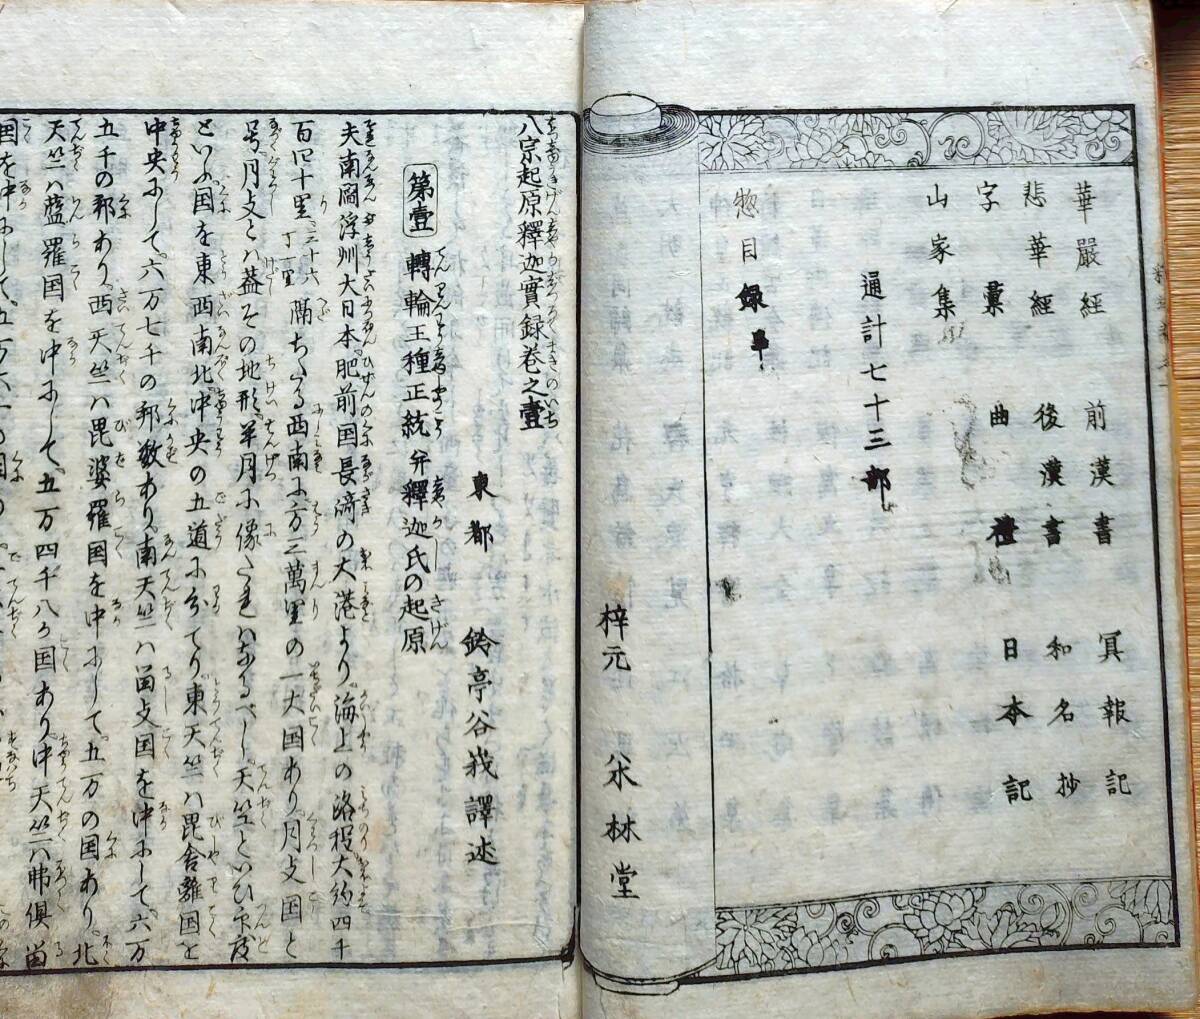 華嚴經 前漢書 冥報記
悲華經 後漢書 和名抄
字彙 曲禮 日本記
山家集
通計七十三部
惣目録畢
梓元 朩林堂
八宗起原釋迦實録卷之壹
東都 鈴亭谷峩譯述
第壹 轉輪王種正統弁釋迦氏の起原
夫南閻浮州大日本肥前国長崎の大港より海上の洛程大約四千
百四十里三十六丁一里隔ちたる西南に方三萬里の一大国あり月支国と
号月支とハ蓋その地形半月に像たれハなるべし天竺といひ印度
といふ国を東西南北中央の五道に分てり東天竺ハ毘舎離国を
中央にして六万七千の邦数あり南天竺ハ畄支国を中にして六万
五千の邦あり西天竺ハ毘婆羅国を中にして五万の国あり北
天竺ハ藍羅国を中にして五万四千八ヶ国あり中天竺ハ弗倶畄
国を中にして